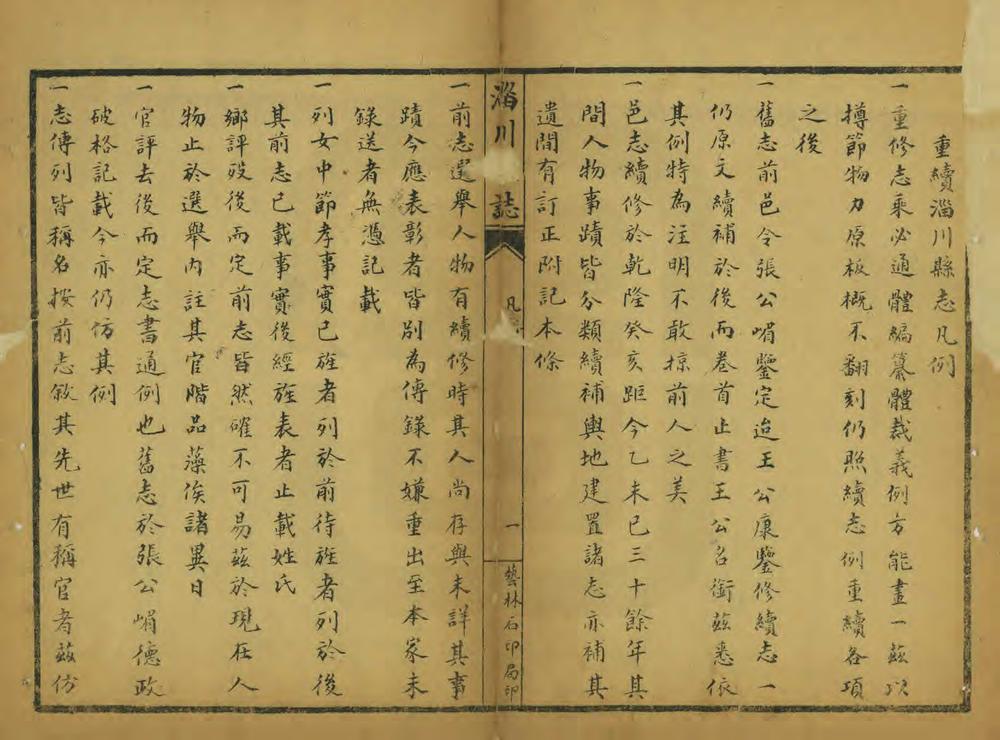 重續淄川縣志凡例
一重修志乘必通體編纂體裁義例方能畫一茲以
撙節物力原板概不翻刻仍照續志例重續各項
之後
一舊志前邑令張公嵋鑒定迨王公康鑒修續志一
仍原文續補於後而卷首止書王公名銜茲悉依
其例特為注明不敢掠前人之美
一邑志續修於乾隆癸亥距今乙未已三十餘年其
間人物事蹟皆分類續補輿地建置諸志亦補其
遺間有訂正附記本條
淄川 誌
凡
一
藝林石印局印
一前志選舉人物有續修時其人尚存與未詳其事
蹟今應表彰者皆別為傳錄不嫌重出至本家未
錄送者無憑記載
一列女中節孝事實已旌者列於前待旌者列於後
其前志已載事實後經旌表者止載姓氏
一鄉評歿後而定前志皆然確不可易茲於現在人
物止於選舉內註其官階品藻俟諸異日
一官評去後而定志書通例也舊志於張公嵋德政
破格記載今亦仍仿其例
一志傳列皆稱名按前志敘其先世有稱官者茲仿